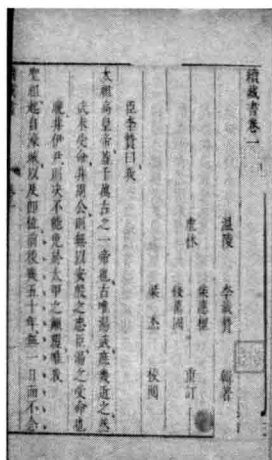 續藏書卷一
溫陵 李贄 輯著
虞休
柴應槐
錢萬國 重訂
柴 杰 校閱
臣李贄曰我
太祖高皇帝蓋千萬古之一帝也古唯湯武庶幾近之然
武未受命非周公則無以安殷之忠臣湯之受命也
晚非伊尹則決不能免於太甲之顛覆唯我
聖祖起自濠城以及即位前後幾五十年無一日而不念